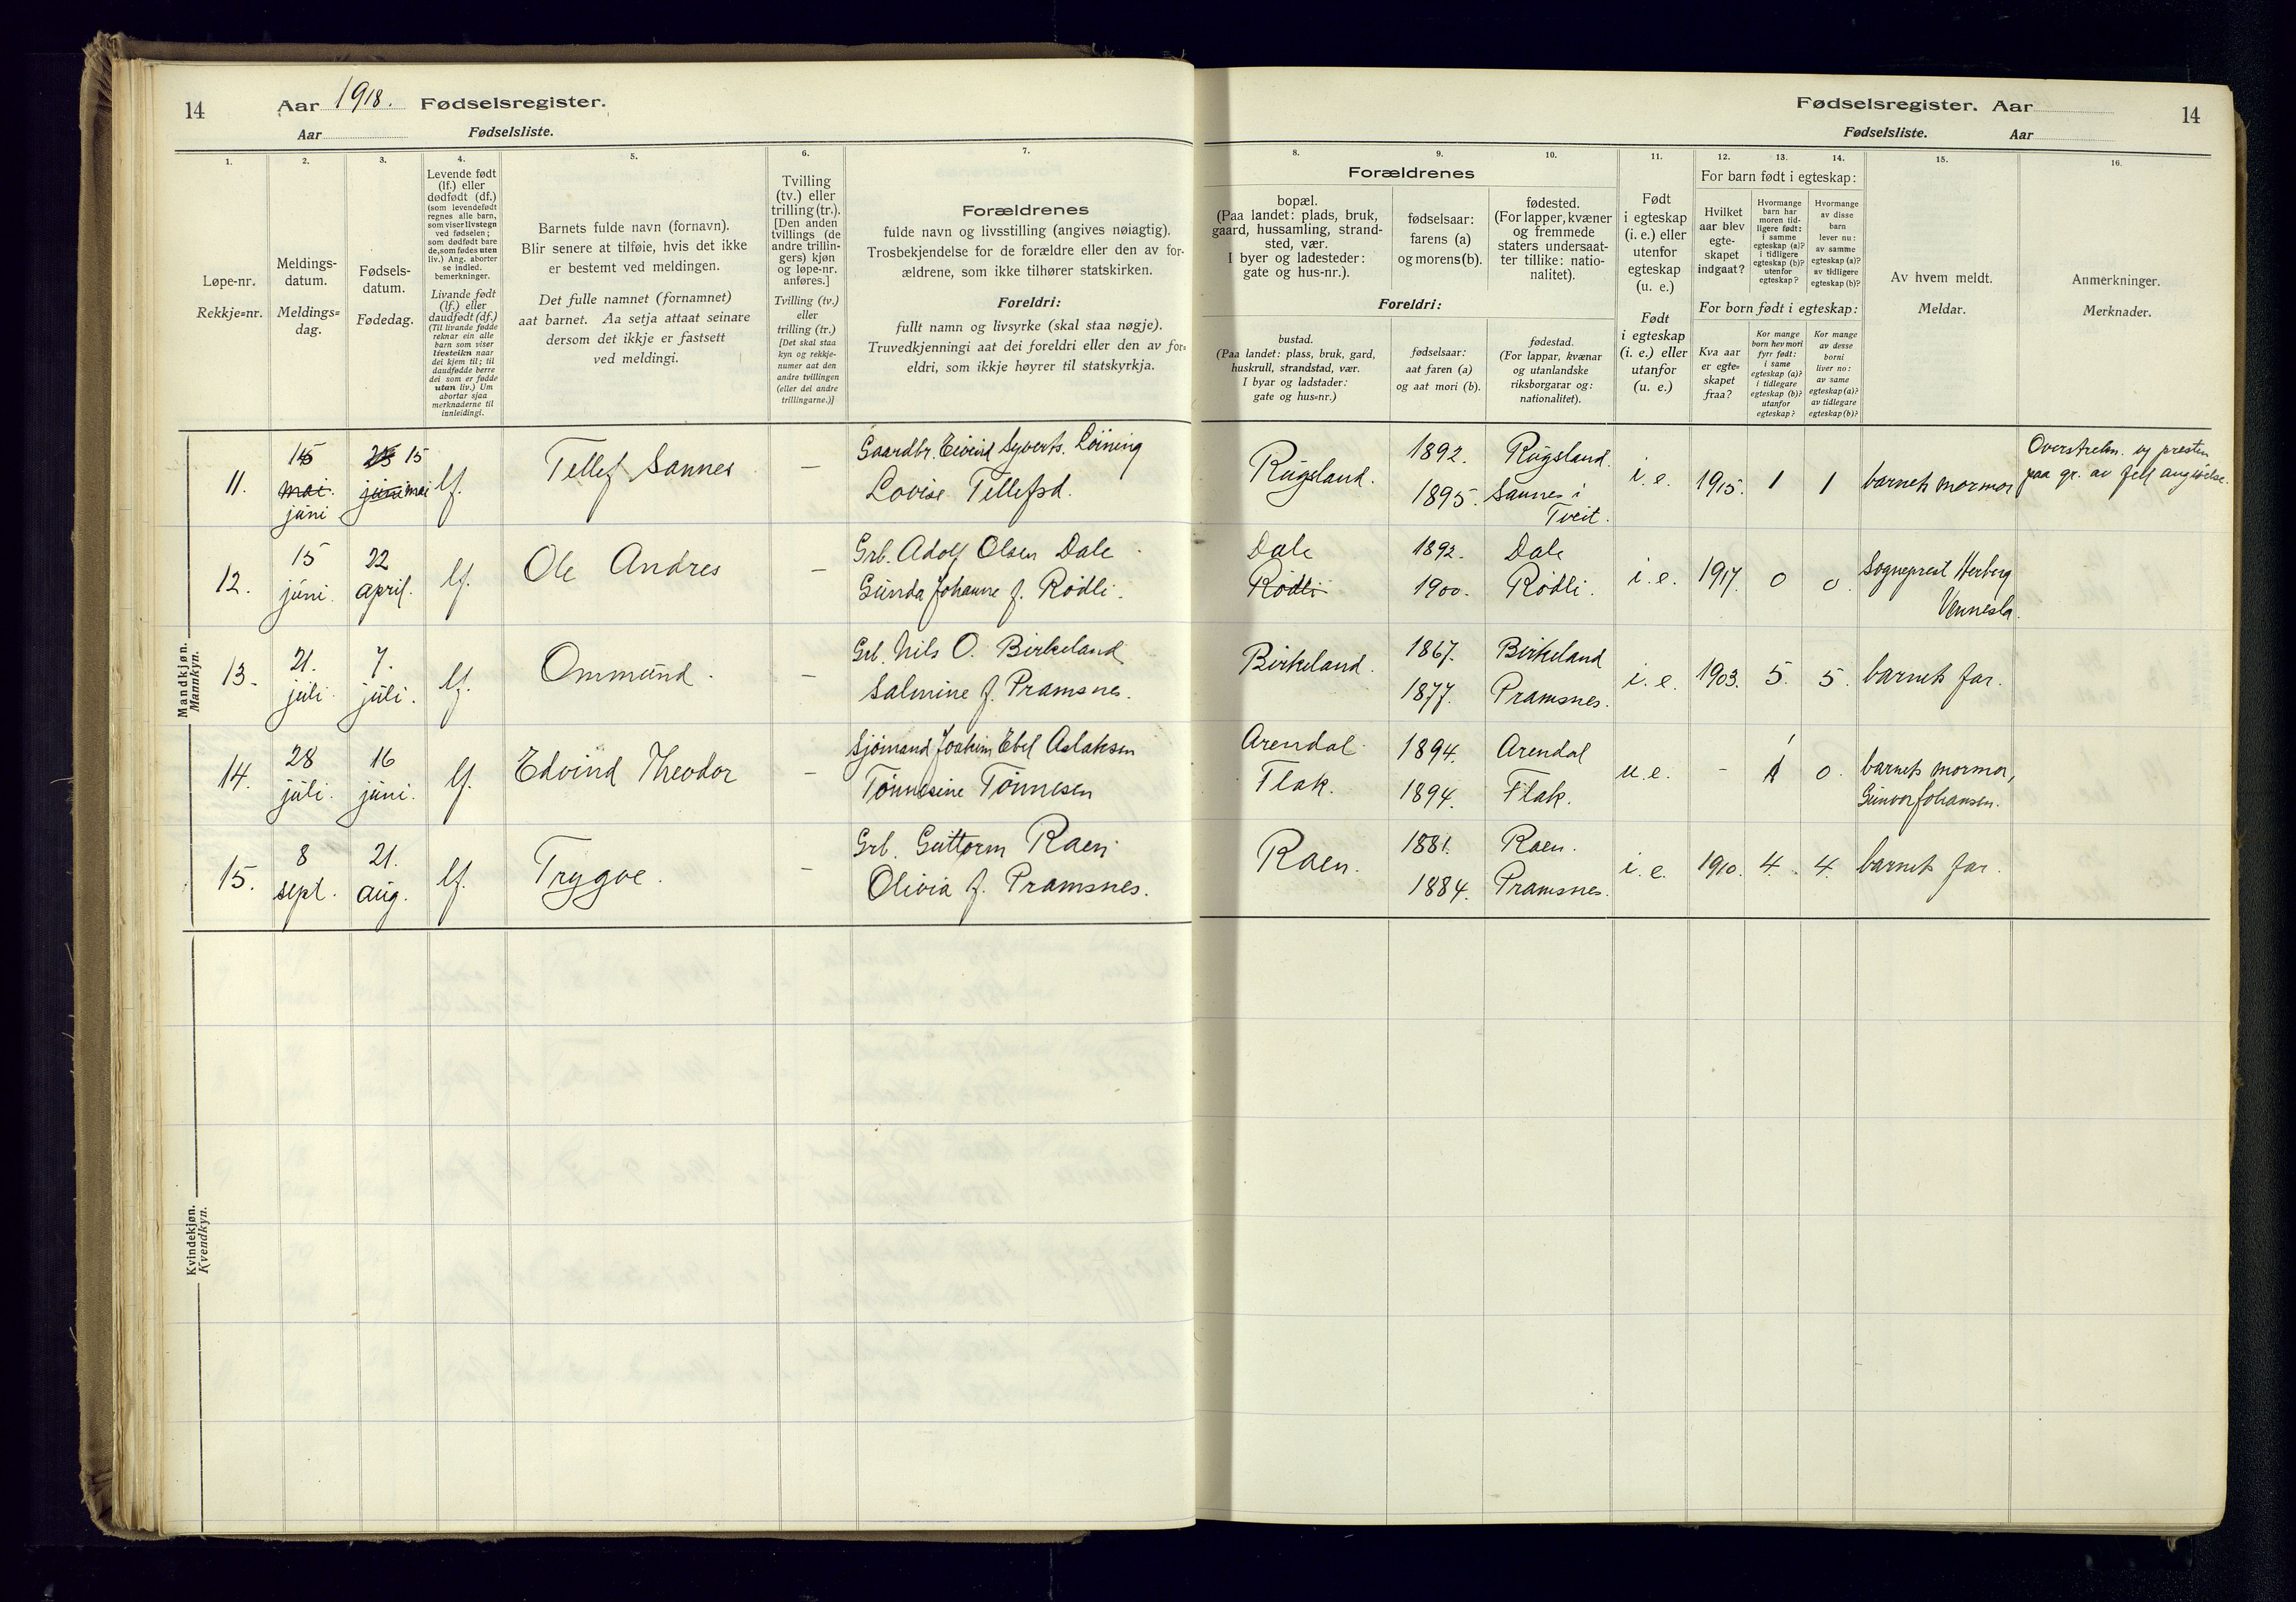 14
Aar 1918. Fødselsregister.
Aar Fødselsliste.
1.
Løpe-nr.
Rekkje=nr.
2.
Meldings-
datum.
Meldings=
dag.
3.
Fødsels-
datum.
Fødedag.
4.
Levende født
(lf.) eller
dødfødt (df.)
(som levendefødt
regnes alle barn,
som viser livstegn
ved fødselen;
som dødfødt bare
de, som fødes uten
liv.) Ang. aborter
se indled.
bemerkninger.
Livande født
(lf.) eller
daudfødt (df.)
(Til livande fødde
reknar ein alle
barn som viser
livsteikn naar
dei kjem til; til
daudfødde berre
dei som er fødde
utan liv.) Um
abortar sjaa
merknaderne til
innleidingi.
5.
Barnets fulde navn (fornavn).
Blir senere at tilføie, hvis det ikke
er bestemt ved meldingen.
Det fulle namnet (fornamnet)
aat barnet. Aa setja attaat seinare
dersom det ikkje er fastsett
ved meldingi.
6.
Tvilling
(tv.) eller
trilling (tr.).
[Den anden
tvillings (de
andre trillin-
gers) kjøn
og løpe-nr.
anføres.]
Tvilling (tv.)
eller
trilling (tr.)
[Det skal staa
kyn og rekkje-
numer aat den
andre tvillingen
(eller dei andre
trillingarne.)]
7.
Forældrenes
fulde navn og livsstilling (angives nøiagtig).
Trosbekjendelse for de forældre eller den av for-
ældrene, som ikke tilhører statskirken.
Foreldri:
fullt namn og livsyrke (skal staa nøgje).
Truvedkjenningi aat dei foreldri eller den av for=
eldri, som ikkje høyrer til statskyrkja.
Fødselsregister. Aar 14
Fødselsliste. Aar
Forældrenes
8.
bopæl.
(Paa landet: plads, bruk,
gaard, hussamling, strand-
sted, vær.
I byer og ladesteder:
gate og hus-nr.).
9.
fødselsaar:
farens (a)
og morens (b).
10.
fødested.
(For lapper, kvæner
og fremmede
staters undersaat-
ter tillike: natio-
nalitet).
Foreldri:
bustad.
(Paa landet: plass, bruk, gard,
huskrull, strandstad, vær.
I byar og ladstader:
gate og hus=nr.)
fødselsaar:
aat faren (a)
og aat mori (b).
fødestad.
(For lappar, kvænar
og utanlandske
riksborgarar og:
nationalitet).
11.
Født
i egteskap
(i. e.) eller
utenfor
egteskap
(u. e.)
Født
i egteskap
(i. e.) eller
utanfor
(u. e.)
For barn født i egteskap:
12.
Hvilket
aar blev
egte-
skapet
indgaat?
13.
Hvormange
barn har
moren tid-
ligere født:
i samme
egteskap (a)?
i tidligere
egteskap (b)?
utenfor
egteskap?
14.
Hvormange
av disse
barn
lever nu:
av samme
egteskap (a)?
av tidligere
egteskap (b)?
For born født i egteskap:
Kva aar
er egte=
skapet
fraa?
Kor mange
born hev mori
fyrr født:
i same
egteskap (a)?
i tidlegare
egteskap (b)?
utanfor
egteskap?
Kor mange
av desse
borni
liver no:
av same
egteskap (a)?
av tidlegare
egteskap (b)?
15.
Av hvem meldt.
Meldar.
16.
Anmerkninger.
Merknader.
Mandkjøn.
Mannkyn.
11. 15 mai. juni 15 juni mai lf. Tellef Sannes – Gaardbr. Eivind Syverts. Løining
Lovise Tellefsd.
Rugsland. 1892. Rugsland.
1895. Sannes i
Tveit.
i. e. 1915. 1 1 barnets mormor
Overstrekn. av presten
paa gr. av feil angivelse.
12. 15 juni. 22 april. lf. Ole Andres – Grb. Adolf Olsen Dale
Gunda Johanne f. Rödli.
Dale 1892. Dale
Rödli 1900. Rödli.
i. e. 1917. 0 0. Sogneprest Herberg
Vennesla.
13. 21. juli. 7. juli. lf. Ommund. – Grb. Nils O. Birkeland
Salmine f. Pramsnes.
Birkeland. 1867. Birkeland
1877. Pramsnes.
i. e. 1903. 5. 5. barnets far.
14. 28 juli. 16 juni. lf. Edvind Theodor – Sjömand Joakim Ebel Aslaksen
Tönnesine Tönnesen
Arendal. 1894. Arendal
Flak. 1894. Flak.
u. e. – 1 0. barnets mormor,
Gunvor Johansen.
15. 8 sept. 21. aug. lf. Trygve. – Grb. Guttorm Raen
Olivia f. Pramsnes.
Raen. 1881. Raen.
1884. Pramsnes.
i. e. 1910. 4. 4. barnets far.
Kvindekjøn.
Kvendkyn.